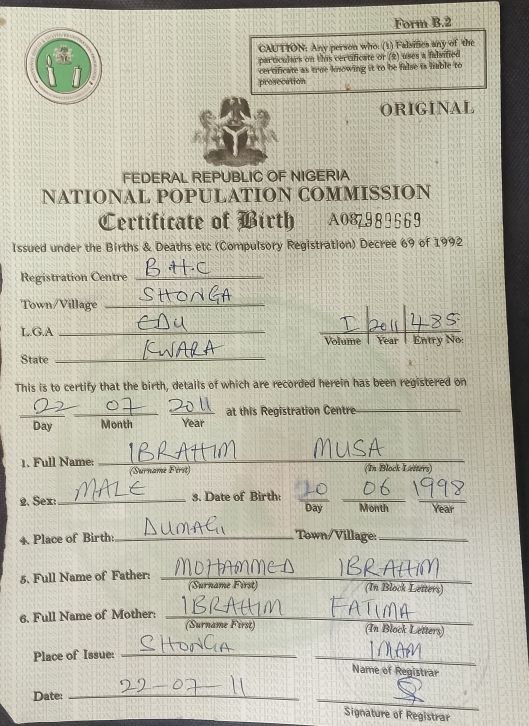 Form B.2
CAUTION: Any person who: (1) Falsifies any of the
particulars on this certificate or (2) uses a falsified
certificate as true knowing it to be false is liable to
prosecution
ORIGINAL
FEDERAL REPUBLIC OF NIGERIA
NATIONAL POPULATION COMMISSION
Certificate of Birth A087989669
Issued under the Births & Deaths etc (Compulsory Registration) Decree 69 of 1992
Registration Centre B.H.C
Town/Village SHONGA
L.G.A EDU
I 2011 485
Volume Year Entry No:
State KWARA
This is to certify that the birth, details of which are recorded herein has been registered on
22 07 2011 at this Registration Centre
Day Month Year
1. Full Name: IBRAHIM MUSA
(Surname First) (In Block Letters)
2. Sex: MALE 3. Date of Birth: 20 06 1998
Day Month Year
4. Place of Birth: DUMAGI Town/Village:
5. Full Name of Father: MOHAMMED IBRAHIM
(Surname First) (In Block Letters)
6. Full Name of Mother: IBRAHIM FATIMA
(Surname First) (In Block Letters)
Place of Issue: SHONGA IMAM
Name of Registrar
Date: 22-07-11
Signature of Registrar